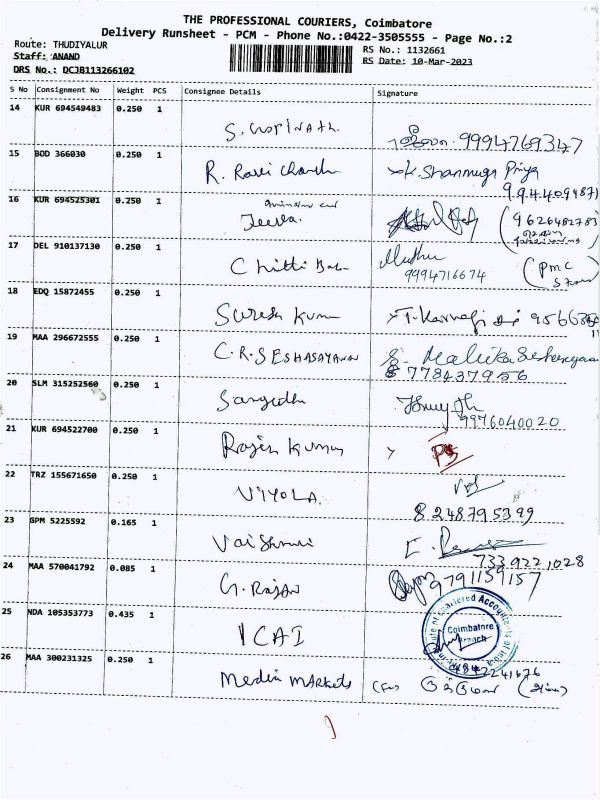 THE PROFESSIONAL COURIERS, Coimbatore
Delivery Runsheet - PCM - Phone No.:0422-3505555 - Page No.:2
Route: THUDIYALUR
RS No.: 1132661
Staff: ANAND
RS Date: 10-Mar-2023
DRS No.: DCJB113266102
S No Consignment No Weight PCS Consignee Details Signature
14 KUR 694549483 0.250 1 S. Gopinath. 9994769347
15 BOD 366030 0.250 1 R. Ravi Chandra K. Shanmuga Priya
16 KUR 694525301 0.250 1 Jeeva. (9626482783
17 DEL 910137130 0.250 1 Chitti Babu Muthu
9994716674 (PMC
18 EDQ 15872455 0.250 1 Suresh Kumar
19 MAA 296672555 0.250 1 C.R. SESHASAYANAN
778437956
20 SLM 315252560 0.250 1 Sangeetha
9976040020
21 KUR 694522700 0.250 1 Rajesh Kumar
22 TRZ 155671650 0.250 1 VIYOLA
8248795399
23 GPM 5225592 0.165 1 Vaishnavi
7339221028
24 MAA 570041792 0.085 1 G. Rajan 9791159157
25 NDA 105353773 0.435 1 ICAI
Institute of Chartered Accountants of India
Coimbatore
Branch
26 MAA 300231325 0.250 1 Media Markets